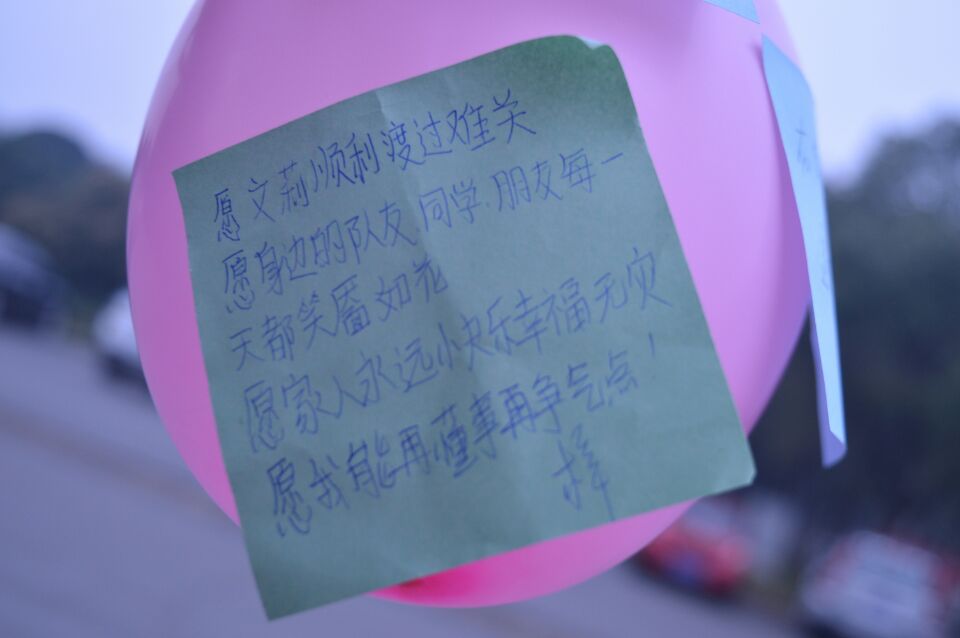 愿文莉顺利渡过难关
愿身边的队友同学.朋友每一
天都笑靥如花
愿家人永远快乐幸福无灾
愿我能再懂事再争气点!